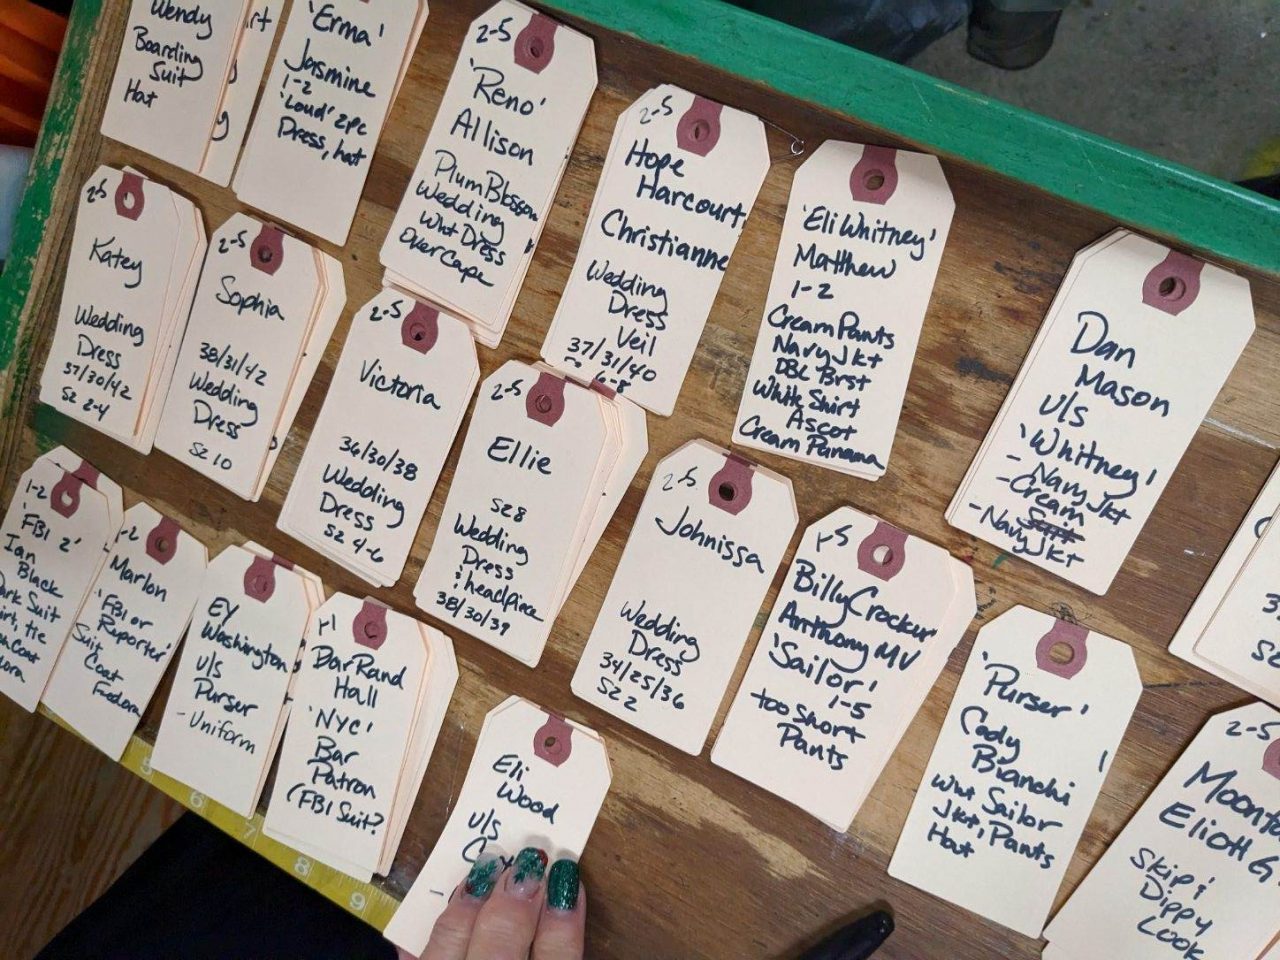 Wendy
Boarding
Suit
Hat
'Erma'
Jasmine
1-2
'Loud' 2pc
Dress, hat
2-5
'Reno'
Allison
Plum Blossom
Wedding
Wht Dress
Over Cape
2-5
Hope
Harcourt
Christianne
Wedding
Dress
Veil
37/31/40
6-8
'Eli Whitney'
Matthew
1-2
Cream Pants
Navy Jkt
DBL Brst
White Shirt
Ascot
Cream Panama
Dan
Mason
U/S
'Whitney'
- Navy Jkt
- Cream
- Navy Jkt
2-5
Katey
Wedding
Dress
37/30/42
SZ 2-4
2-5
Sophia
38/31/42
Wedding
Dress
SZ 10
2-5
Victoria
36/30/38
Wedding
Dress
SZ 4-6
2-5
Ellie
SZ 8
Wedding
Dress
& headpiece
38/30/39
2-5
Johnissa
Wedding
Dress
34/25/36
SZ 2
1-5
Billy Crocker
Anthony MV
'Sailor'
1-5
too short
Pants
'Purser'
Cody
Bianchi
Wht Sailor
Jkt, Pants
Hat
2-5
Eliott G.
Skip &
Dippy
Look
1-2
'FBI 2'
Ian
Black
Suit
tie
1-2
Marlon
'FBI or
Reporter'
Suit
Coat
Fedora
EY
Washington
U/S
Purser
- Uniform
1-1
DarRand
Hall
'NYC'
Bar
Patron
(FBI Suit?
Eli
Wood
U/S
6
7
8
9